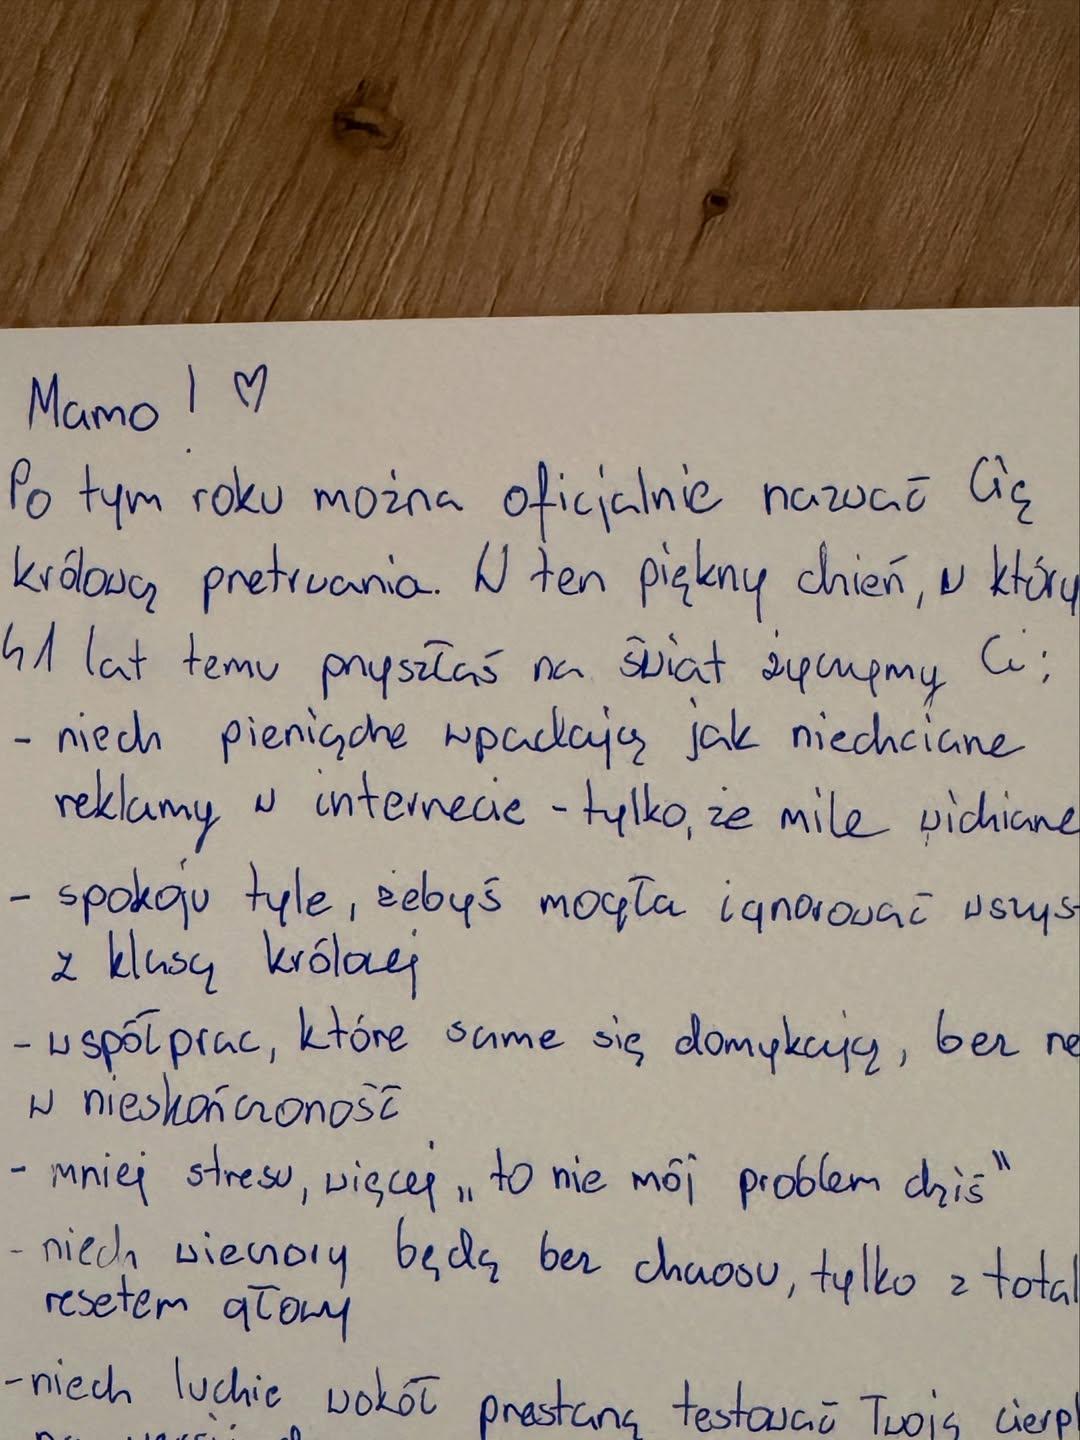 Mamo! ♡
Po tym roku można oficjalnie nazwać Cię
królową przetrwania. W ten piękny dzień, w który
41 lat temu przyszłaś na świat życzymy Ci:
- niech pieniądze wpadają jak niechciane
reklamy w internecie - tylko, że mile widziane
- spokoju tyle, żebyś mogła ignorować wszys
z klasą królowej
- współprac, które same się domykają, bez
w nieskończoność
- mniej stresu, więcej „to nie mój problem dziś"
- niech wieczory będą bez chaosu, tylko z total
resetem głowy
- niech ludzie wokół przestaną testować Twoją cierpl